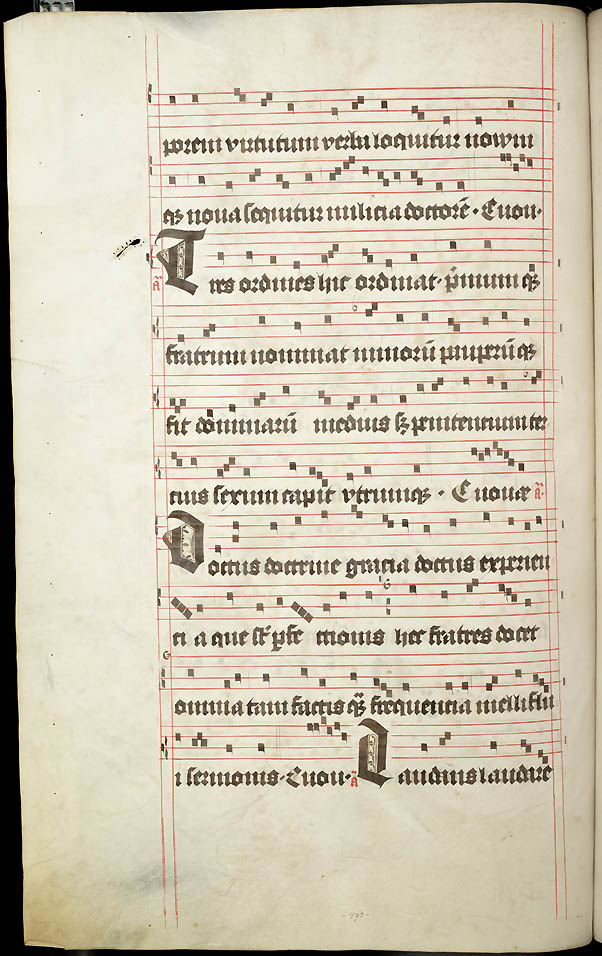 porem virtutum verbũ loquitur nouum
q3 noua sequitur milicia doctorẽ · Euou ·
Tres ordines hic ordinat · p̃mum q3
fratrum nominat minorũ pauperũ q3
fit dominarũ medius s3 penitentium ter
cius sexum capit vtrumq3 · Euouae ã
Doctus doctrine gracia doctus experien
ti a que st̃ pfe ctionis hec fratres docet
omnia tam factis q̃3 frequencia melliflu
i sermonis · Euou · ã Laudans laudare